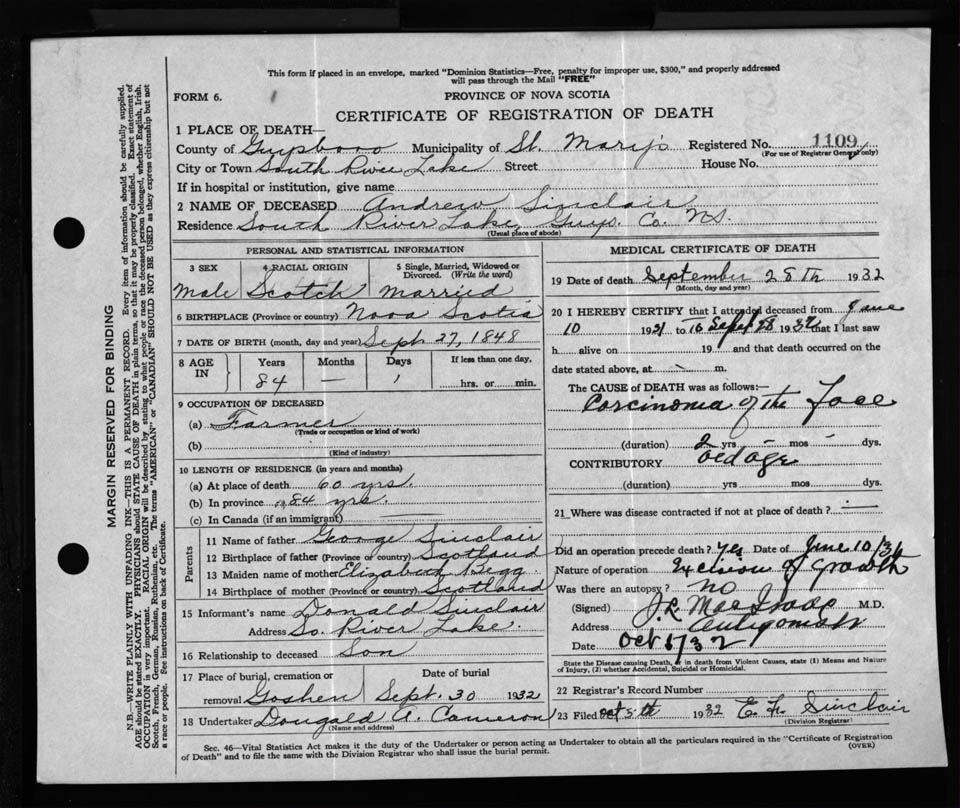 This form if placed in an envelope, marked "Dominion Statistics—Free, penalty for improper use, $300," and properly addressed
will pass through the Mail "FREE"
FORM 6.
PROVINCE OF NOVA SCOTIA
CERTIFICATE OF REGISTRATION OF DEATH
1 PLACE OF DEATH—
County of Guysboro Municipality of St. Mary's Registered No. 1109
(For use of Registrar General only)
City or Town South River Lake Street House No.
If in hospital or institution, give name
2 NAME OF DECEASED Andrew Sinclair
Residence South River Lake, Guys. Co. NS.
(Usual place of abode)
PERSONAL AND STATISTICAL INFORMATION
3 SEX 4 RACIAL ORIGIN 5 Single, Married, Widowed or
Divorced. (Write the word)
Male Scotch Married
6 BIRTHPLACE (Province or country) Nova Scotia
7 DATE OF BIRTH (month, day and year) Sept 27, 1848
8 AGE IN Years Months Days If less than one day,
84 — 1 hrs. or min.
9 OCCUPATION OF DECEASED
(a) Farmer
(Trade or occupation or kind of work)
(b)
(Kind of industry)
10 LENGTH OF RESIDENCE (in years and months)
(a) At place of death 60 yrs.
(b) In province 84 yrs.
(c) In Canada (if an immigrant)
Parents
11 Name of father George Sinclair
12 Birthplace of father (Province or country) Scotland
13 Maiden name of mother Elizabeth Begg
14 Birthplace of mother (Province or country) Scotland
15 Informant's name Donald Sinclair
Address So. River Lake.
16 Relationship to deceased Son
17 Place of burial, cremation or Date of burial
removal Goshen Sept. 30 1932
18 Undertaker Dougald A. Cameron
(Name and address)
MEDICAL CERTIFICATE OF DEATH
19 Date of death September 28th 1932
(Month, day and year)
20 I HEREBY CERTIFY that I attended deceased from June
10 1931 to Sept 28 1932 that I last saw
h alive on 19 and that death occurred on the
date stated above, at - m.
The CAUSE of DEATH was as follows:—
Carcinoma of the Face
(duration) 2 yrs - mos - dys.
CONTRIBUTORY Old age
(duration) yrs mos dys.
21 Where was disease contracted if not at place of death? —
Did an operation precede death? Yes Date of June 10/31
Nature of operation Excision of growth
Was there an autopsy? no
(Signed) M.D.
Address Antigonish
Date Oct 1/32
State the Disease causing Death, or in death from Violent Causes, state (1) Means and Nature
of Injury, (2) whether Accidental, Suicidal or Homicidal.
22 Registrar's Record Number
23 Filed Oct 5th 1932 Sinclair
(Division Registrar)
Sec. 46—Vital Statistics Act makes it the duty of the Undertaker or person acting as Undertaker to obtain all the particulars required in the "Certificate of Registration
of Death" and to file the same with the Division Registrar who shall issue the burial permit. (OVER)
MARGIN RESERVED FOR BINDING
N.B.—WRITE PLAINLY WITH UNFADING INK—THIS IS A PERMANENT RECORD. Every item of information should be carefully supplied.
AGE should be stated EXACTLY. PHYSICIANS should STATE CAUSE OF DEATH in plain terms, so that it may be properly classified. Exact statement of
OCCUPATION is very important. RACIAL ORIGIN will be described by stating to what people or race the deceased person belonged, whether English, Irish,
Scotch, French, German, Russian, Ruthenian, etc. The terms "AMERICAN" or "CANADIAN" SHOULD NOT BE USED as they express citizenship but not
a race or people. See instructions on back of Certificate.